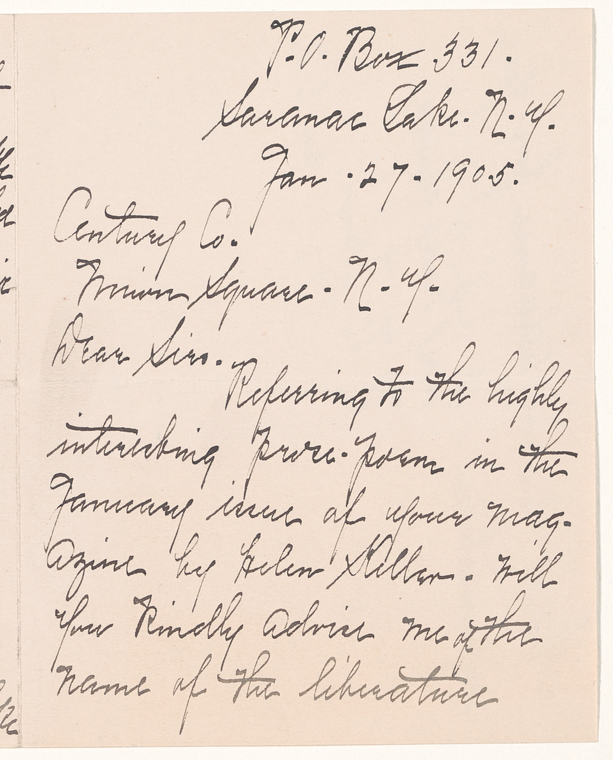 P.O. Box 331.
Saranac Lake. N.Y.
Jan. 27. 1905.
Century Co.
Union Square. N.Y.
Dear Sirs.
Referring to the highly
interesting prose-poem in the
January issue of your mag-
azine by Helen Keller. Will
you kindly advise me of the
name of the literature